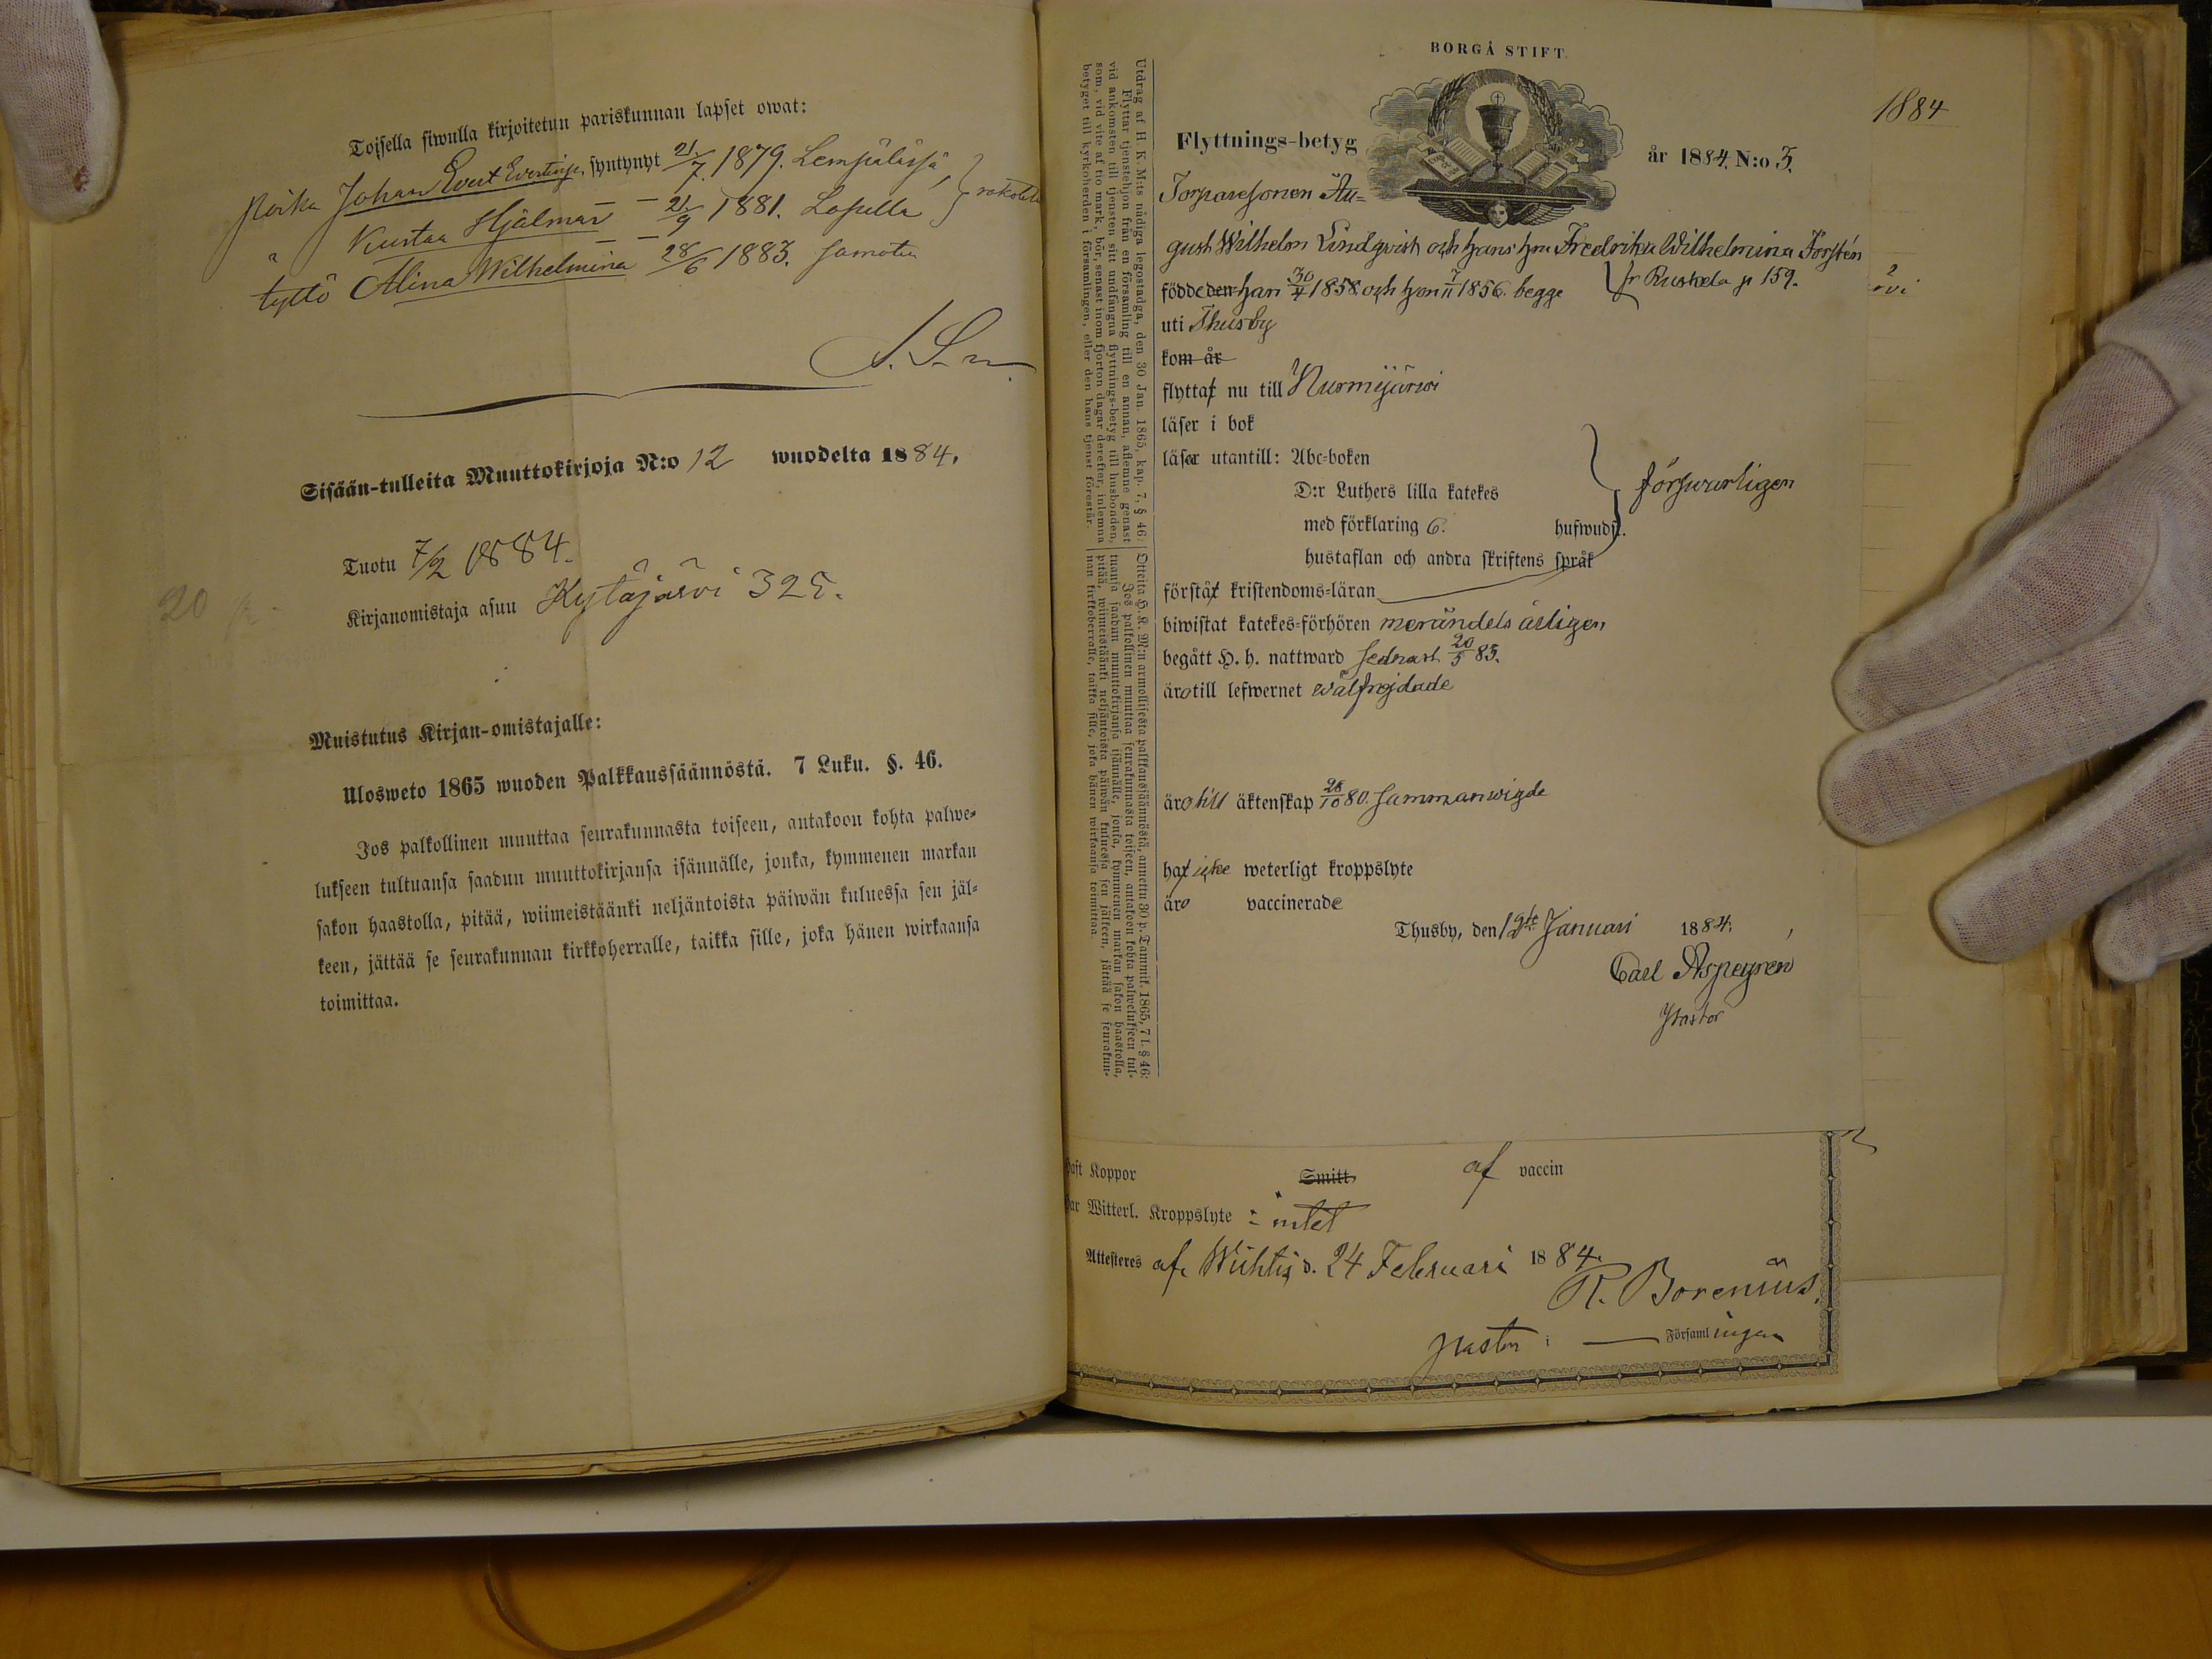 Toisella siwulla kirjoitetun pariskunnan lapset owat:
Poika Johan Evert Evertinp. syntynyt 21/7 1879. Lempäälässä,
" Kustaa Hjalmar — 21/9 1881. Lopella
tyttö Alina Wilhelmina 28/6 1883. samoten
Sisään-tulleita Muuttokirjoja N:o 12 wuodelta 1884.
Tuotu 7/2 1884.
Kirjanomistaja asuu Kytäjärvi 325.
20
Muistutus Kirjan-omistajalle:
Ulosweto 1865 wuoden Palkkaussäännöstä. 7 Luku. §. 46.
Jos palkollinen muuttaa seurakunnasta toiseen, antakoon kohta palwe-
lukseen tultuansa saadun muuttokirjansa isännälle, jonka, kymmenen markan
sakon haastolla, pitää, wiimeistäänki neljäntoista päiwän kuluessa sen jäl-
keen, jättää se seurakunnan kirkkoherralle, taikka sille, joka hänen wirkaansa
toimittaa.
Utdrag af H. K. M:ts nådiga legostadga, den 30 Jan. 1865, kap. 7, § 46:
Flyttar tjenstehjon från en församling till en annan, aflemne genast
vid ankomsten till tjensten sitt undfångna flyttnings-betyg till husbonden,
som, vid vite af tio mark, bör, senast inom fjorton dagar derefter, inlemna
betyget till kyrkoherden i församlingen, eller den hans tjenst förestår.
Otteita H. K. M:n armollisesta palkkaussäännöstä, annettu 30 p. Tammik. 1865, 7 l. § 46:
Jos palkollinen muuttaa seurakunnasta toiseen, antakoon kohta palwelukseen tul-
tuansa saadun muuttokirjansa isännälle, jonka, kymmenen markan sakon haastolla,
pitää, wiimeistäänki neljäntoista päiwän kuluessa sen jälkeen, jättää se seurakun-
nan kirkkoherralle, taikka sille, joka hänen wirkaansa toimittaa.
BORGÅ STIFT
1884
Flyttnings-betyg
år 1884. N:o 3.
Torparesonen Au-
gust Wilhelm Lindqvist och hans hu Fredrika Wilhelmina Forstén
födde den han 30/4 1858 och hon 7/11 1856. begge
fr Ruskela p 159.
uti Thusby
kom år
flyttat nu till Nurmijärvi
läser i bok
läsar utantill: Abc-boken
D:r Luthers lilla katekes
med förklaring 6. hufwudst.
hustaflan och andra skriftens språk
försvarligen
förstår kristendoms-läran
biwistat katekes-förhören merändels årligen
begått H. h. nattward sednast 20/5 83.
äro till lefwernet wälfrejdade
äro till äktenskap 28/10 80. sammanwigde
har icke weterligt kroppslyte
äro vaccinerade
Thusby, den 19de Januari 1884.
Carl Aspegren
Pastor
haft Koppor Smitt. af vaccin
har Witterl. Kroppslyte : intet
Attesteres af Wichtis d. 24 Februari 1884.
R. Borenius.
pastor i — Församlingen